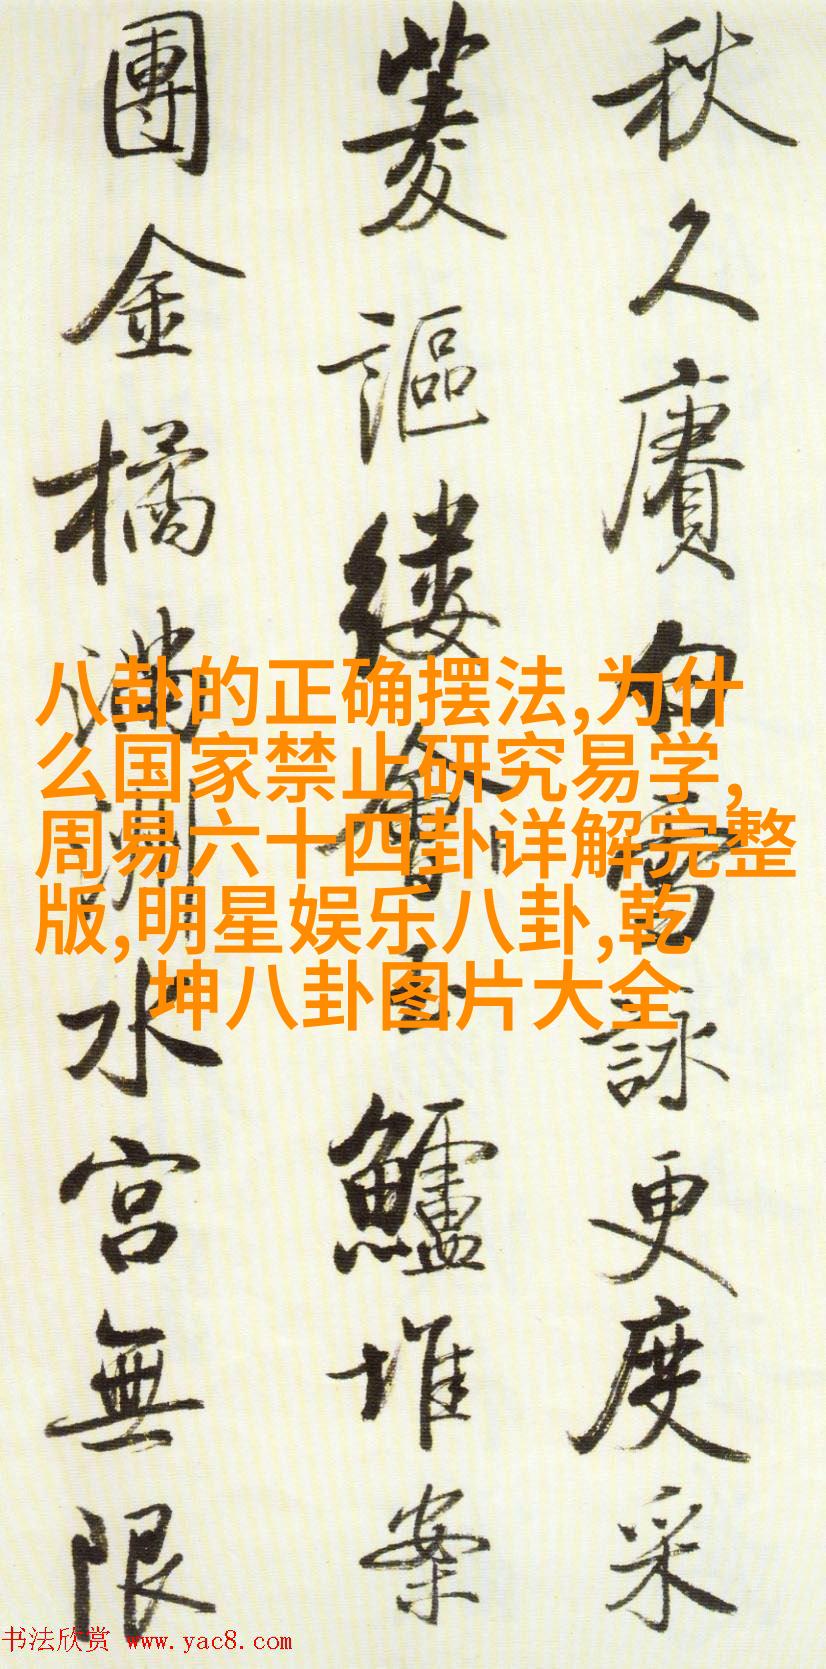 秋久賡白雪詠更度采
菱謳縷會玉鱸堆案
團金橘滿洲水宮無限
八卦的正确摆法,为什
么国家禁止研究易学,
周易六十四卦详解完整
版,明星娱乐八卦,乾
坤八卦图片大全
书法欣赏 www.yac8.com